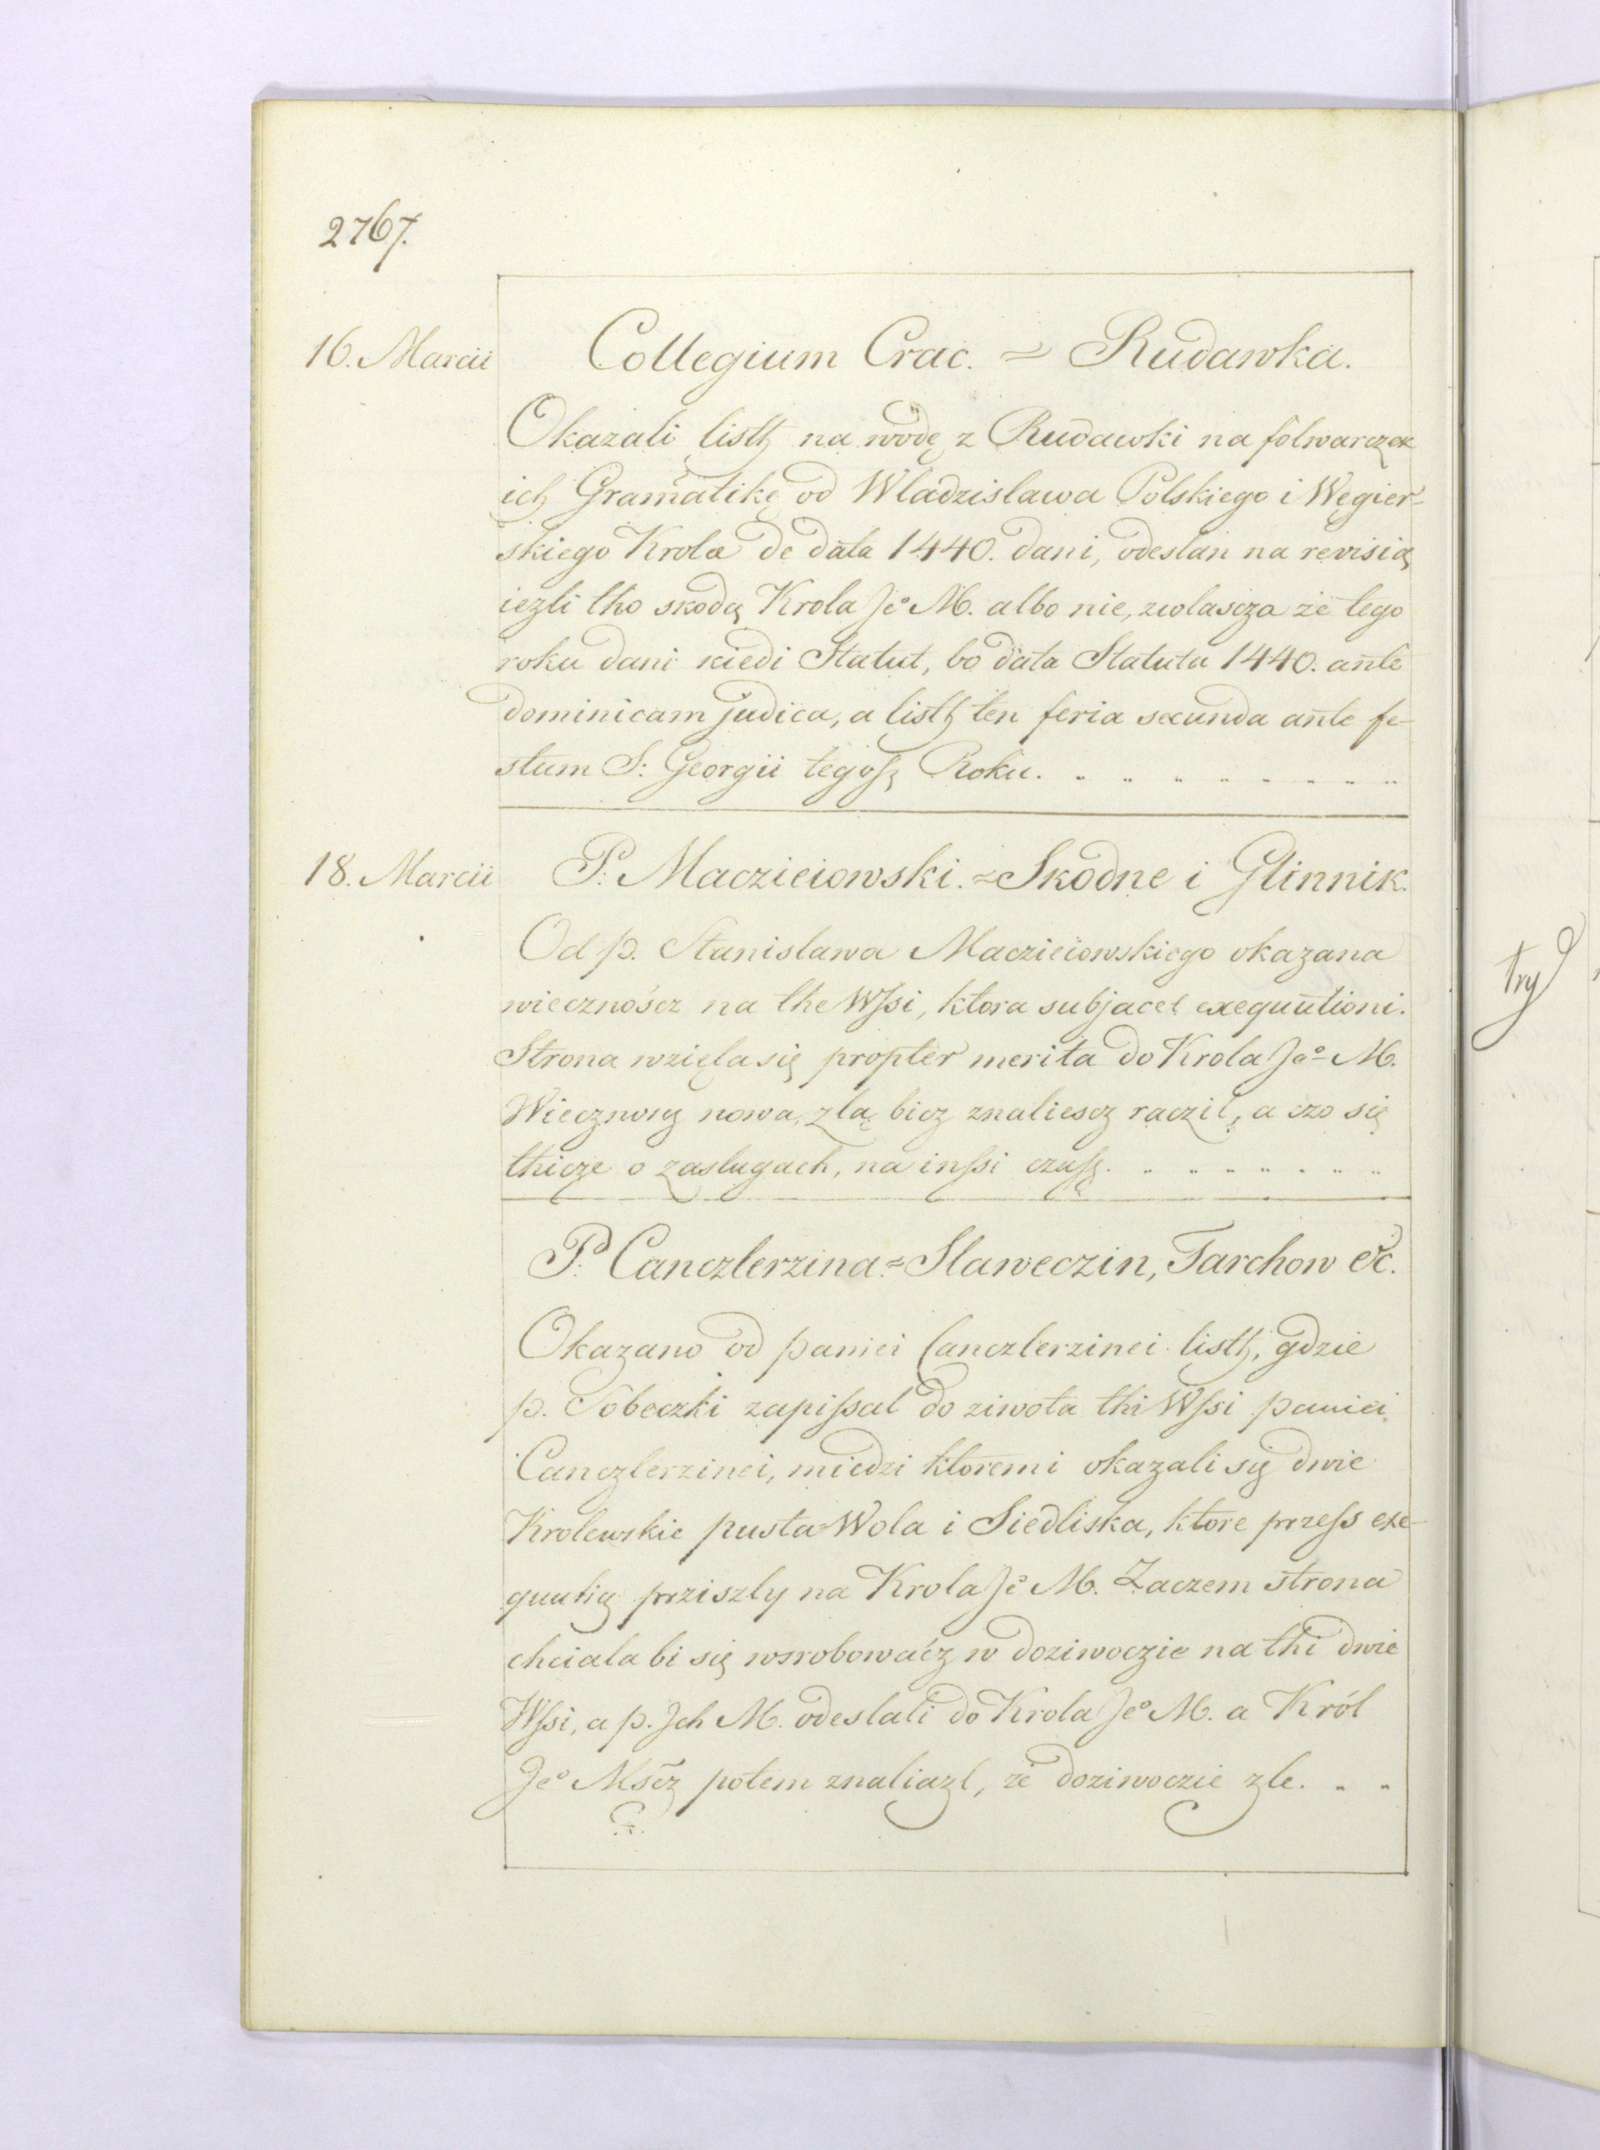 2767.
16. Marcii
Collegium Crac. = Rudawka.
Okazali listh na wodę z Rudawki na folwarczek
ich Gramatikę od Wladzislawa Polskiego i Węgier-
skiego Krola de data 1440. dani, odeslan na revisią
iezli tho skodą Krola Je° M. albo nie, zwlascza że tego
roku dani kiedi Statut, bo data Statuta 1440. ante
dominicam judica, a listh ten feria secunda ante fe-
stum S: Georgii tegosz Roku.
18. Marcii
P: Maczieiowski. = Skodne i Glinnik.
Od p. Stanislawa Maczieiowskiego okazana
wiecznoścz na the Wssi, ktora subjacet exequutioni.
Strona wzięla się propter merita do Krola Je° M.
Wiecznoscz nowa, zlą bicz znaliescz raczil, a czo się
thicze o zaslugach, na inssi czass.
P: Canczlerzina = Slaweczin, Tarchow &c.
Okazano od paniei Canczlerzinei listh, gdzie
p. Sobeczki zapissal do ziwota thi Wssi paniei
Canczlerzinei, miedzi ktoremi okazali się dwie
Krolewskie pusta Wola i Siedliska, ktore przess exe-
quutią prziszly na Krola Je° M. Zaczem strona
chciala bi się wsrobowacz w doziwoczie na thi dwie
Wssi, a p. Jch M. odeslali do Krola Je° M. a Król
Je° Mścz potem znaliazl, że doziwoczie zle.
try